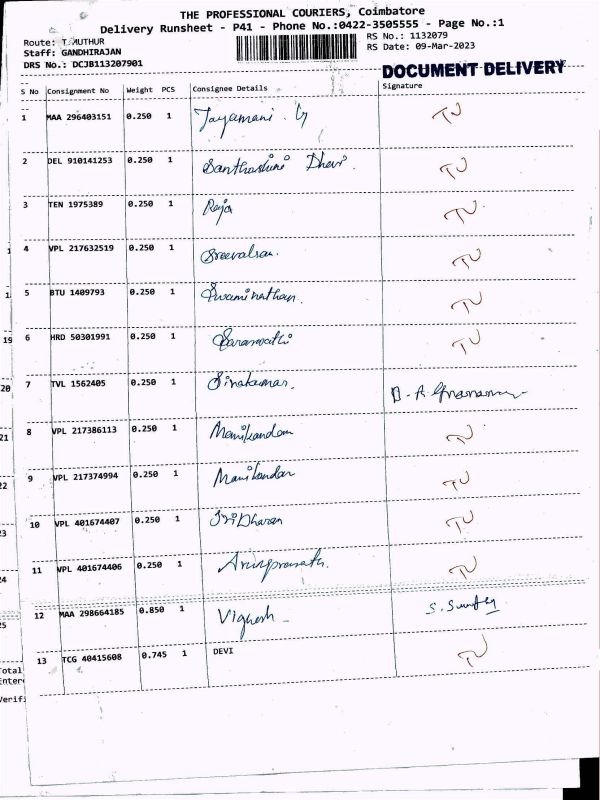 THE PROFESSIONAL COURIERS, Coimbatore
Delivery Runsheet - P41 - Phone No.:0422-3505555 - Page No.:1
Route: T.MUTHUR
Staff: GANDHIRAJAN
DRS No.: DCJB113207901
RS No.: 1132079
RS Date: 09-Mar-2023
DOCUMENT DELIVERY
S No Consignment No Weight PCS Consignee Details Signature
1 MAA 296403151 0.250 1 Jayamani. G TU
2 DEL 910141253 0.250 1 Santhoshini Dhevi. TU
3 TEN 1975389 0.250 1 Raja TU
4 VPL 217632519 0.250 1 Sreevalsan. TU
5 BTU 1409793 0.250 1 Swaminathan. TU
6 HRD 50301991 0.250 1 Saraswathi TU
7 TVL 1562405 0.250 1 Sivakumar.
8 VPL 217386113 0.250 1 Manikandan TU
9 VPL 217374994 0.250 1 Manikandan TU
10 VPL 401674407 0.250 1 SriDharan TU
11 VPL 401674406 0.250 1 Arunprasath. TU
12 MAA 298664185 0.850 1 Vignesh
13 TCG 40415608 0.745 1 DEVI TU
19
20
21
22
23
24
25
Total
Enter
Verifi